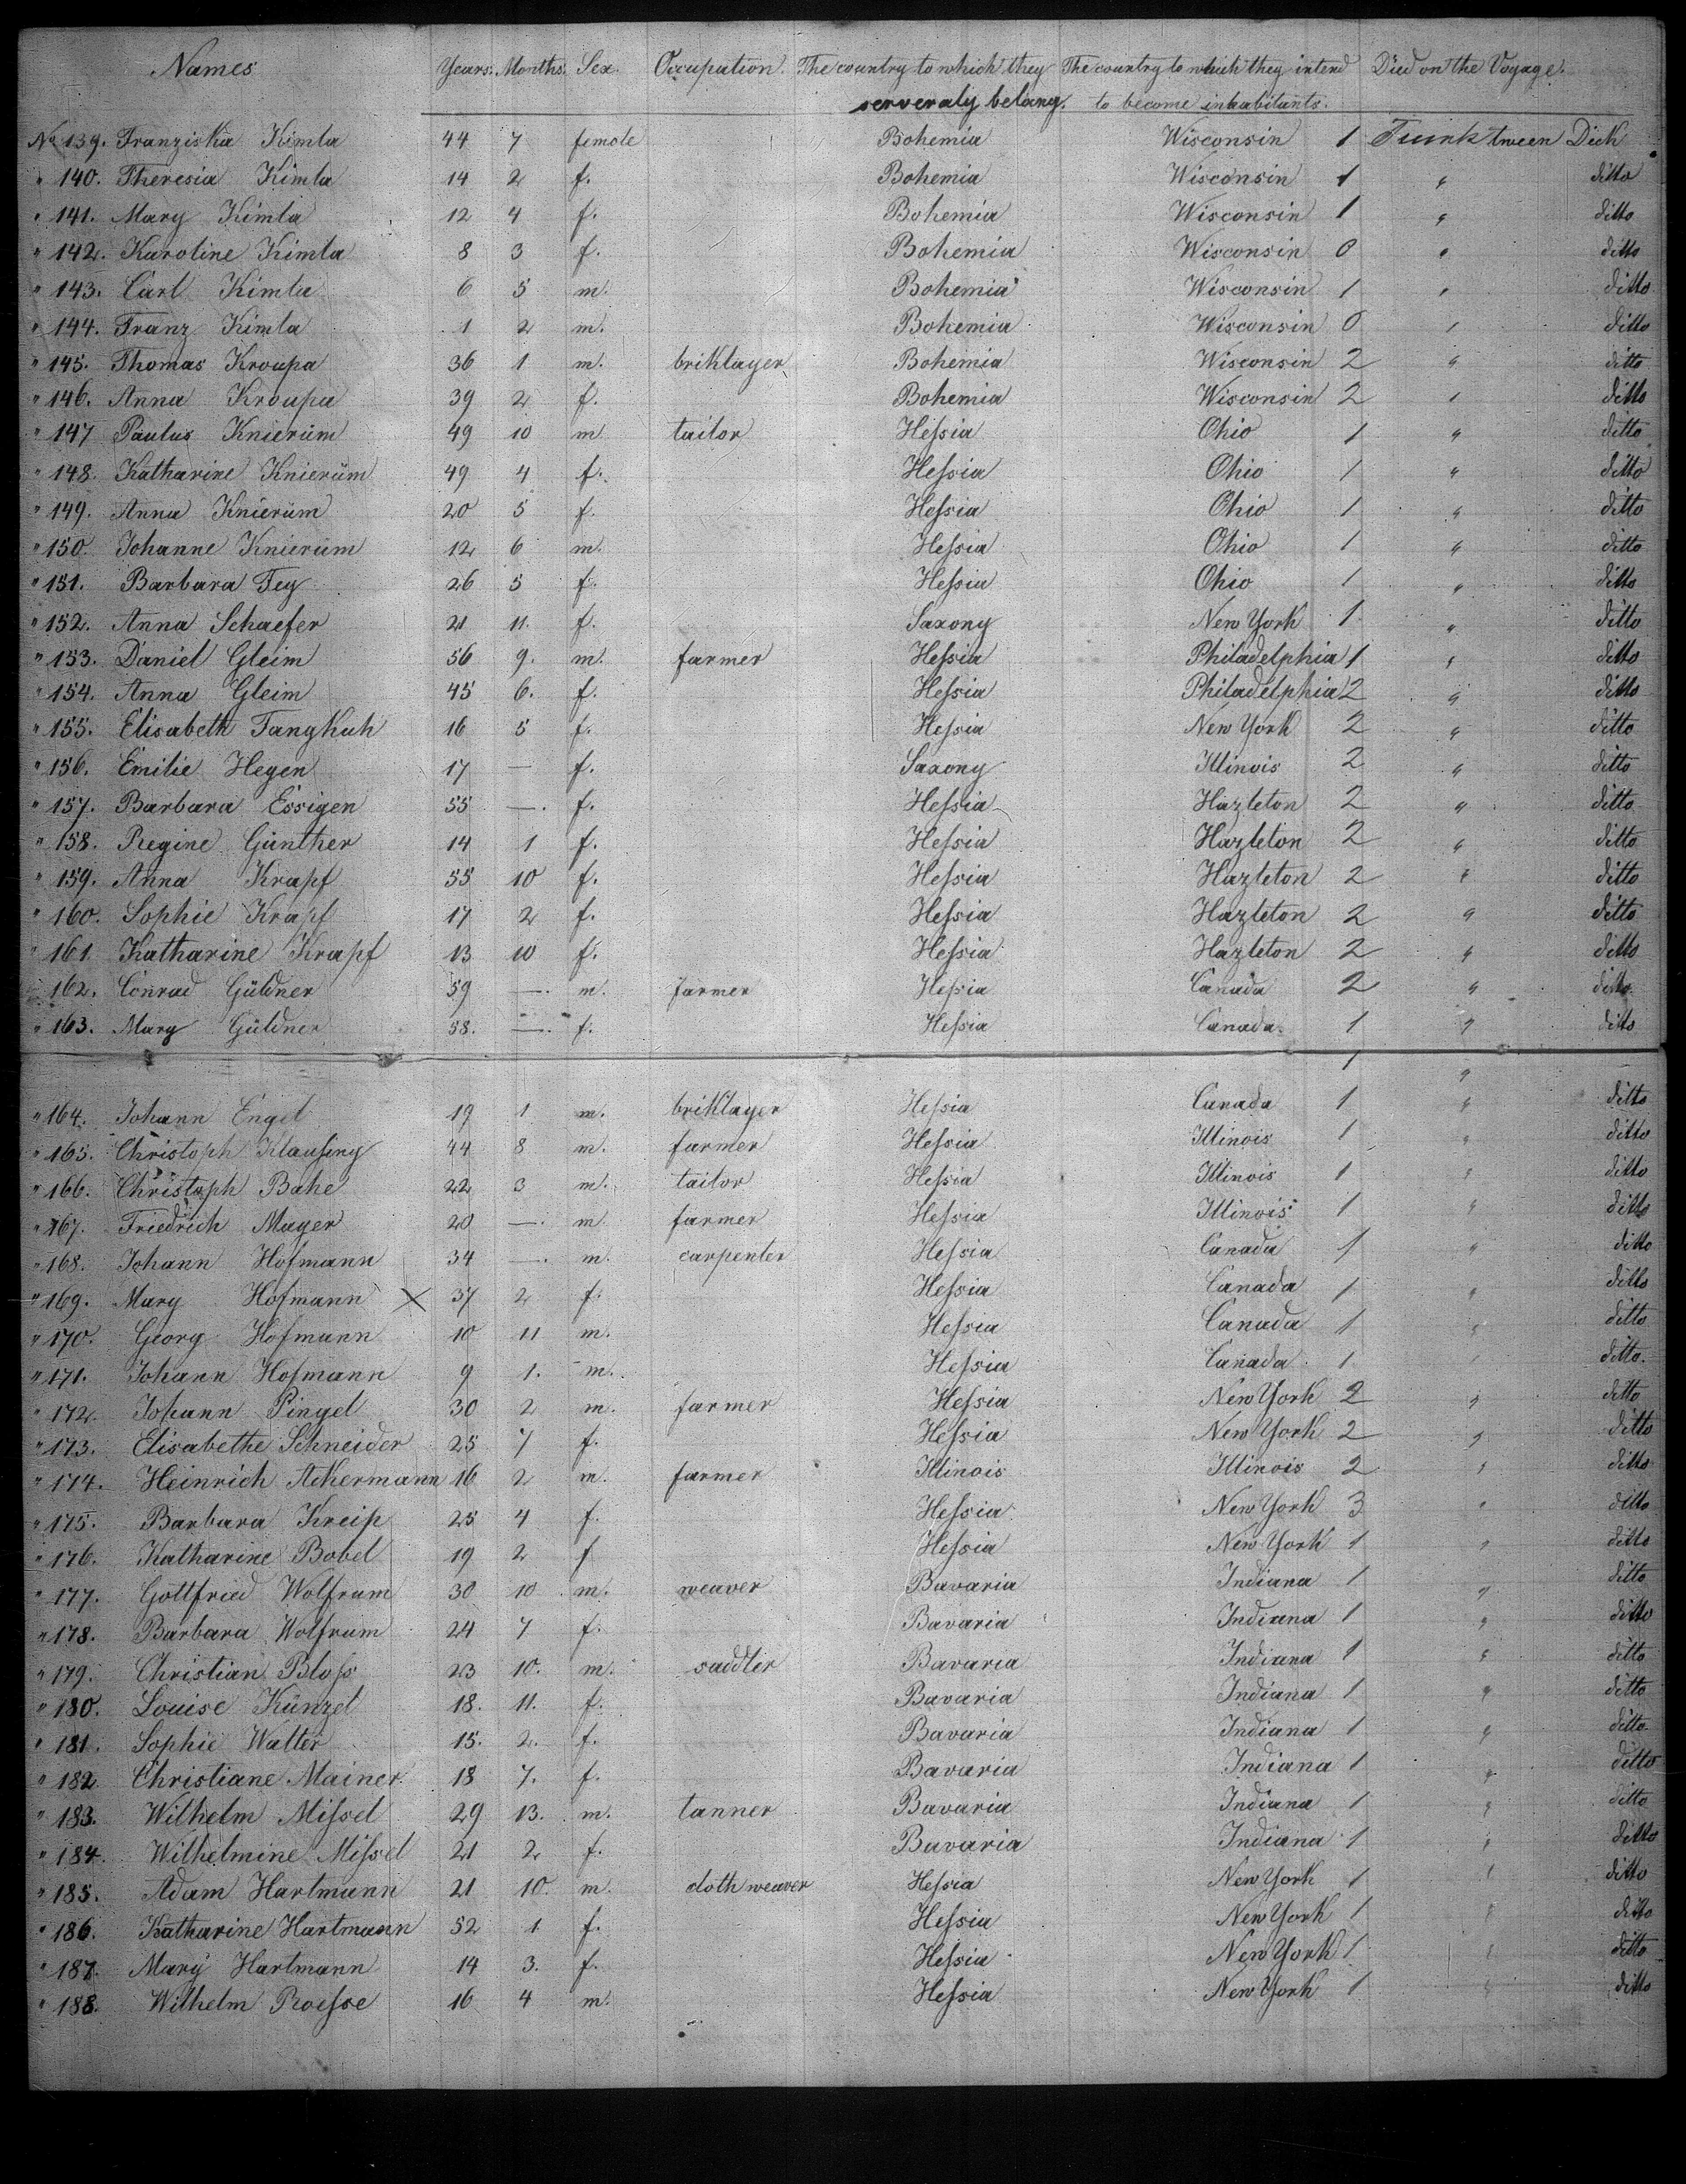 Names Years. Months. Sex. Occupation. The country to which they The country to which they intend Died on the Voyage.
serveraly belong. to become inhabitants.
No 139. Franziska Kimla 44 7 female Bohemia Wisconsin 1 Trunk tween Deck
" 140. Theresia Kimla 14 2 f. Bohemia Wisconsin 1 " ditto
" 141. Mary Kimla 12 4 f. Bohemia Wisconsin 1 " ditto
" 142. Karoline Kimla 8 3 f. Bohemia Wisconsin 0 " ditto
" 143. Carl Kimla 6 5 m. Bohemia Wisconsin 1 " ditto
" 144. Franz Kimla 1 2 m. Bohemia Wisconsin 0 " ditto
" 145. Thomas Kroupa 36 1 m. briklayer Bohemia Wisconsin 2 " ditto
" 146. Anna Kroupa 39 2 f. Bohemia Wisconsin 2 " ditto
" 147 Paulus Knierüm 49 10 m. tailor Heſsia Ohio 1 " ditto
" 148. Katharine Knierüm 49 4 f. Heſsia Ohio 1 " ditto
" 149. Anna Knierüm 20 5 f. Heſsia Ohio 1 " ditto
" 150. Johanne Knierüm 12 6 m. Heſsia Ohio 1 " ditto
" 151. Barbara Fey 26 5 f. Heſsia Ohio 1 " ditto
" 152. Anna Schaefer 21 11. f. Saxony New York 1 " ditto
" 153. Daniel Gleim 56 9. m. farmer Heſsia Philadelphia 1 " ditto
" 154. Anna Gleim 45 6. f. Heſsia Philadelphia 2 " ditto
" 155. Elisabeth Tangkuh 16 5 f. Heſsia New York 2 " ditto
" 156. Emilie Hegen 17 — f. Saxony Illinois 2 " ditto
" 157. Barbara Essigen 55 —. f. Heſsia Hazleton 2 " ditto
" 158. Regine Günther 14 1 f. Heſsia Hazleton 2 " ditto
" 159. Anna Krapf 55 10 f. Heſsia Hazleton 2 " ditto
" 160. Sophie Krapf 17 2 f. Heſsia Hazleton 2 " ditto
" 161 Katharine Krapf 13 10 f. Heſsia Hazleton 2 " ditto
" 162. Conrad Güldner 59 —. m. farmer Heſsia Canada 2 " ditto
" 163. Mary Güldner 58. —. f. Heſsia Canada. 1 " ditto
1 "
" 164. Johann Engel 19 1 m. briklayer Heſsia Canada 1 " ditto
" 165. Christoph Klauſing 44 8 m. farmer Heſsia Illinois 1 " ditto
" 166. Christoph Bahe 22 3 m. tailor Heſsia Illinois 1 " ditto
" 167. Friedrich Mayer 20 —. m. farmer Heſsia Illinois 1 " ditto
" 168. Johann Hofmann 34 —. m. carpenter Heſsia Canada 1 " ditto
" 169. Mary Hofmann X 37 2 f. Heſsia Canada 1 " ditto
" 170. Georg Hofmann 10 11 m. Heſsia Canada 1 " ditto
" 171. Johann Hofmann 9 1. m. Heſsia Canada 1 " ditto.
" 172. Johann Pingel 30 2 m. farmer Heſsia New York 2 " ditto
" 173. Elisabethe Schneider 25 7 f. Heſsia New York 2 " ditto
" 174. Heinrich Ackermann 16 2 m. farmer Illinois Illinois 2 " ditto
" 175. Barbara Kreiß 25 4 f. Heſsia New York 3 " ditto
" 176. Katharine Bobel 19 2 f Heſsia New York 1 " ditto
" 177. Gottfried Wolfrum 30 10 m. weaver Bavaria Indiana 1 " ditto
" 178. Barbara Wolfrum 24 7 f. Bavaria Indiana 1 " ditto
" 179. Christian Bloſs 23 10. m. saddler Bavaria Indiana 1 " ditto
" 180. Louise Künzel 18. 11. f. Bavaria Indiana 1 " ditto
" 181. Sophie Walter 15. 2. f. Bavaria Indiana 1 " ditto
" 182. Christiane Mainer 18 7. f. Bavaria Indiana 1 " ditto
" 183. Wilhelm Miſsel 29 13. m. tanner Bavaria Indiana 1 " ditto
" 184. Wilhelmine Miſsel 21 2 f. Bavaria Indiana 1 " ditto
" 185. Adam Hartmann 21 10. m. cloth weaver Heſsia New York 1 " ditto
" 186. Katharine Hartmann 52 1 f. Heſsia New York 1 " ditto
" 187. Mary Hartmann 14 3. f. Heſsia New York 1 " ditto
" 188. Wilhelm Roeſse 16 4 m. Heſsia New York 1 " ditto